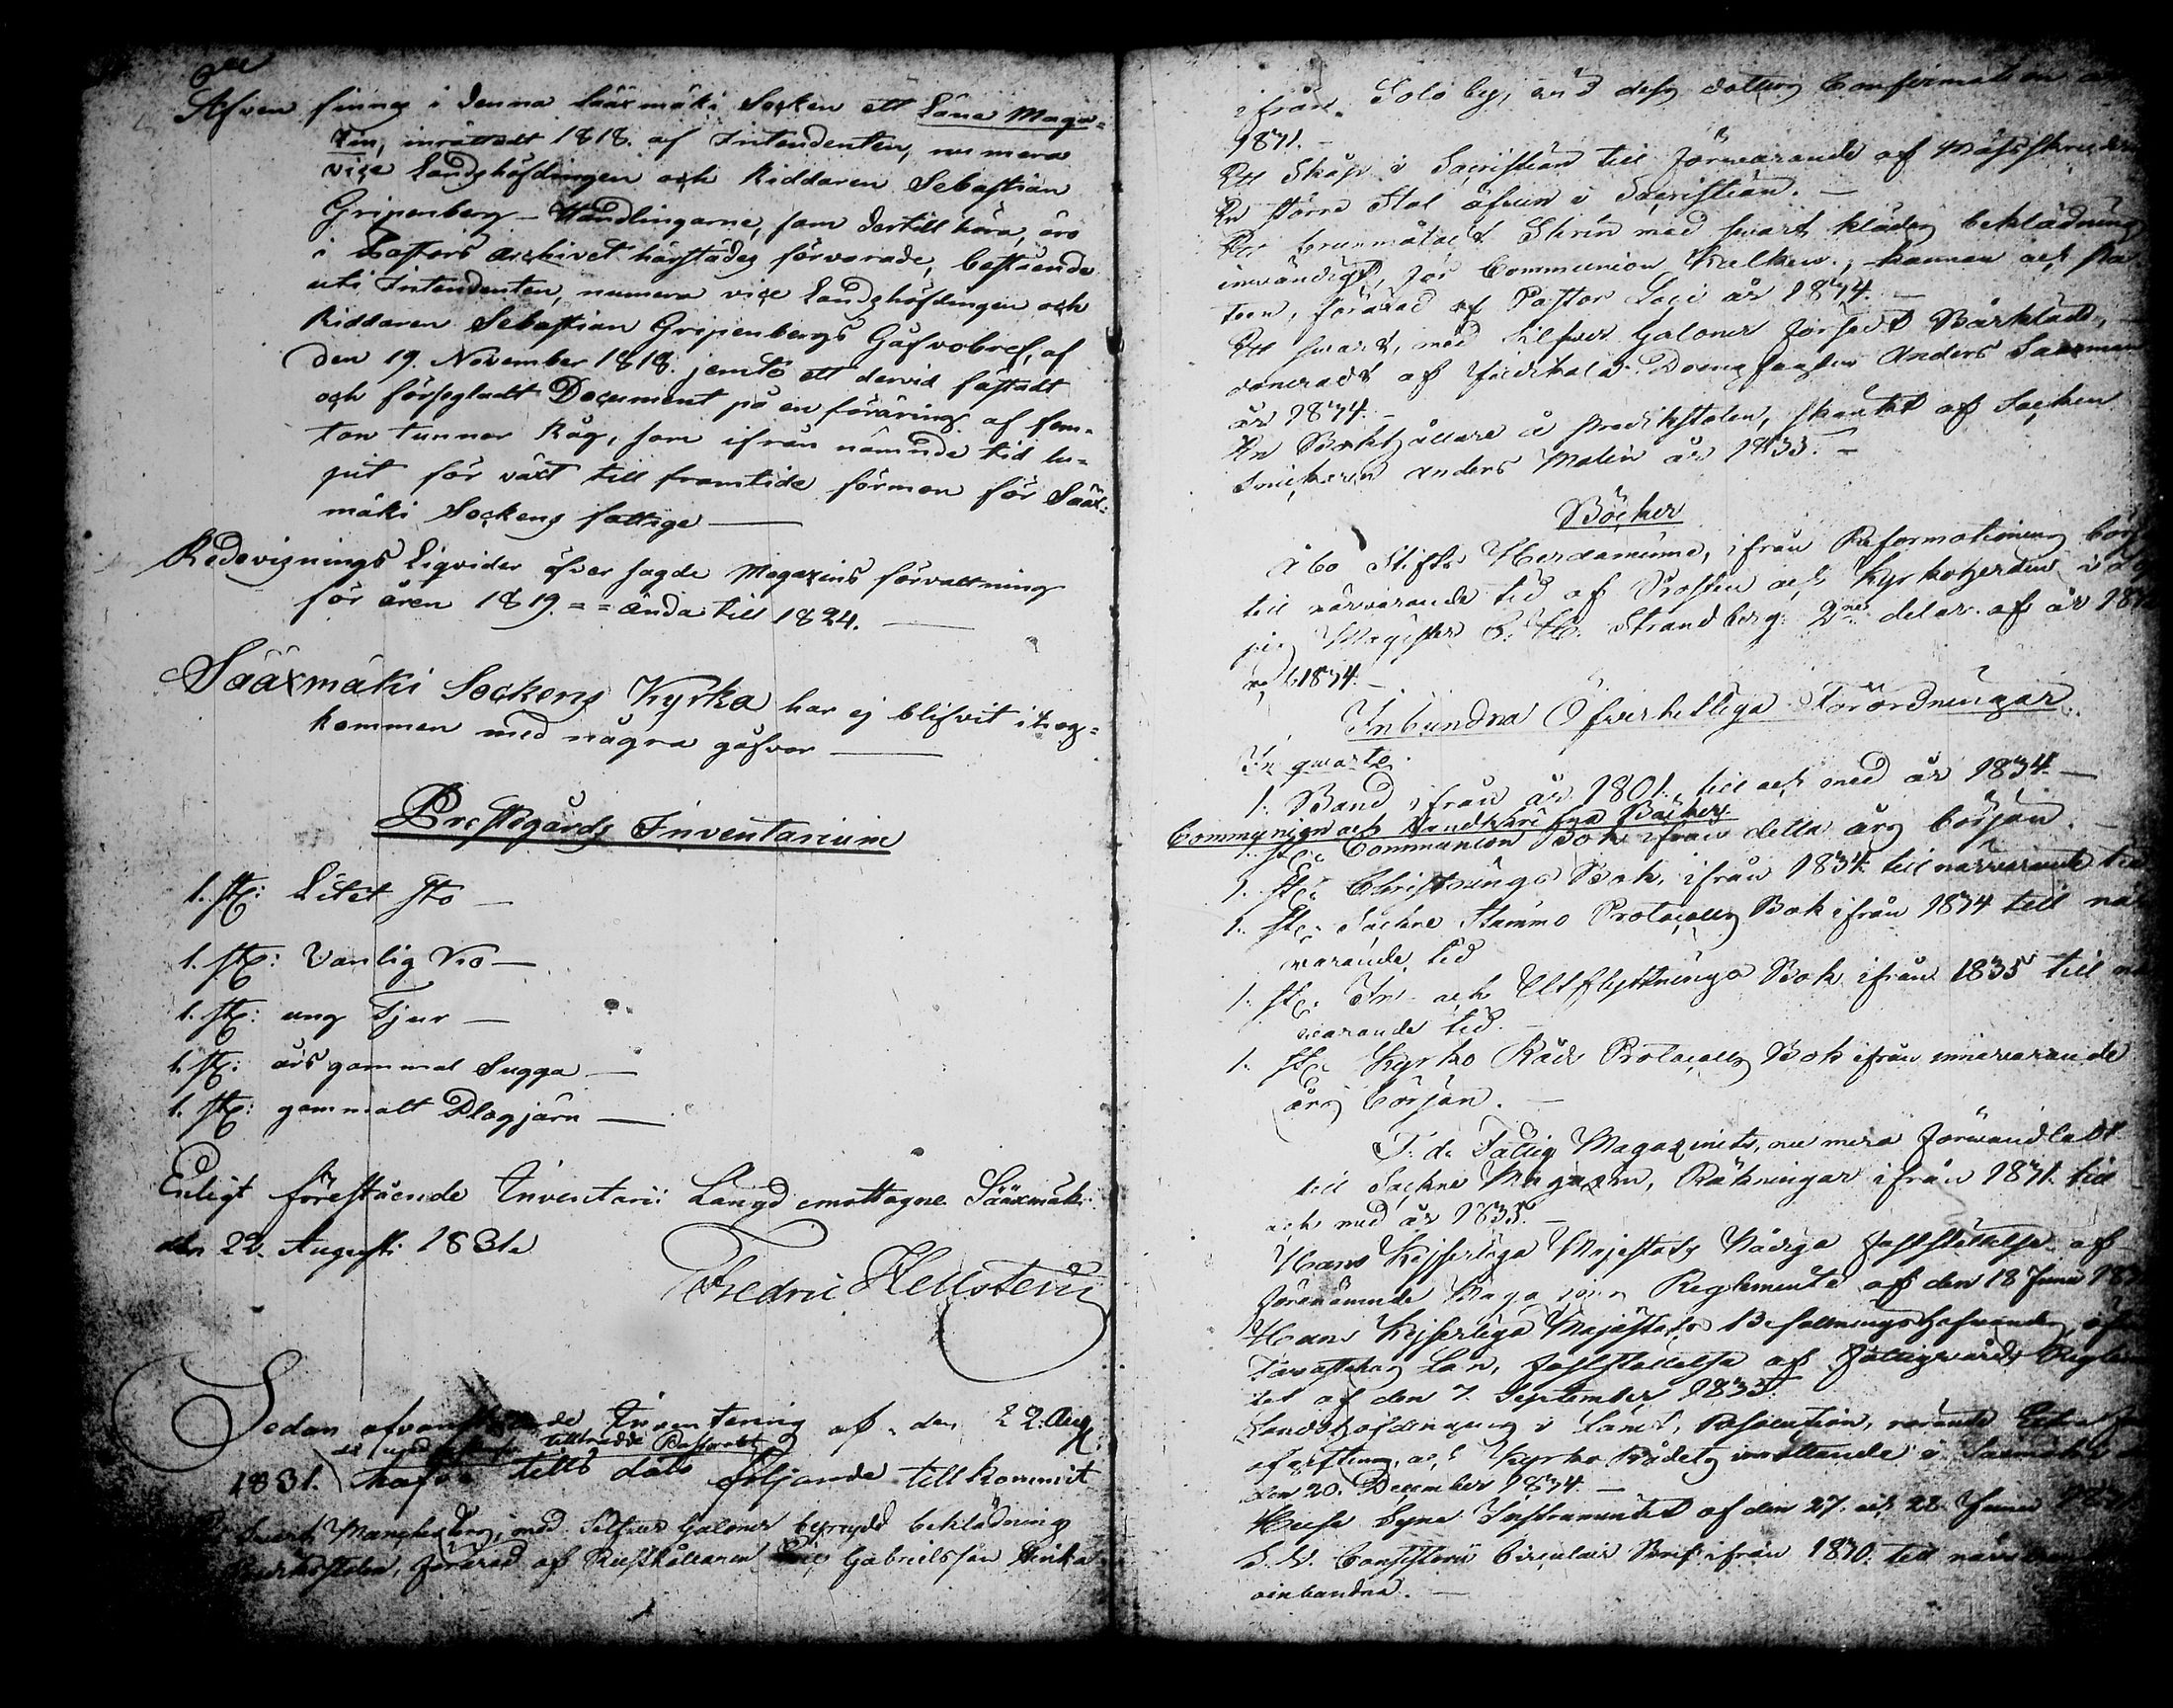 Äfven finnes i denna Sääxmäki Socken ett Låne Maga=
zin, inrättadt 1818. af Intendenten, nu mera
vice Landshöfdingen och Riddaren Sebastian
Gripenberg – Handlingarne, som dertill höra, äro
i Pastors Archivet härstädes förvarade, bestående
uti Intendenten, numera vice Landshöfdingen och
Riddaren Sebastian Gripenbergs Gåfvobref, af
den 19. November 1818. jemte ett dervid fästadt
och försegladt Document på en föräring af fem=
ton tunnor Råg, som ifrån nämnde tid lu=
pit för växt till framtida förmon för Sääx=
mäki Sockens fattige —
Redovisnings Liqvider öfver sagde Magazins förvaltning
för åren 1819. = = ända till 1824. —
Sääxmäki Sockens Kyrka har ej blifvit ihog=
kommen med några gåfvor —
Prestgårds Inventarium
1. st: Litet Sto —
1. st: Vanlig Ko —
1. st: ung Tjur —
1. st: års gammal Sugga —
1. st: gammalt Plogjärn —
Enligt förestående Inventarii Längd emottagne Sääxmäki
den 22. Augusti 1831.
Fredric Hellsten
Sedan ofvanstående Inventering af den 22. Aug.
tillträdde Pastoratet
1831. hafva tills dato följande tillkommit
Svart Manchester, med Silfver Galoner beprydd beklädning
Predikstolen, förärad af Rusthållaren Gabrielsson
ifrån Solo by, vid dess dotters Confirmation
1831. –
Ett Skåp i Sacristian till förwarande af Mässskruden
En större Stol äfven i Sacristian. –
Ett brunmåladt Skrin med svart klädes beklädning
invändigt, för Communion Kalken, kannan och Pa
teen, förärad af Pastor år 1834. –
Ett svart, med Silfver Galoner försedt Bårkläde, –
doneradt af Anders
år 1834. –
En Ljushållare å Predikstolen, skänkt af Socken
Snickaren Anders Malin år 1833. –
Böcker
Åbo Stifts Herdaminne, ifrån Reformationens börj
till närvarande tid af Prosten och Kyrkoherden i
Magister C. H. Strandberg 2ne delar af år 183
1834. –
Inbundna Öfverhetliga Förordningar
In quarto.
1. Band ifrån år 1801. till och med år 1834. –
Communion och Handskrifna Böcker.
1. st: Communion Bok ifrån detta års början. –
1. st: Christnings Bok, ifrån 1834. till närvarande tid
1. st: Sockne Stämmo Protocolls Bok ifrån 1834 till när
warande tid
1. st: In- och Utflyttnings Bok ifrån 1835 till när
warande tid. –
1. st: Kyrko Råds Protocolls Bok ifrån innevarande
års början. –
F. d. Fattig Magazinets, nu mera förwandladt
till Sockne Magazin, Räkningar ifrån 1831. till
och med år 1835. –
Hans Kejserliga Majestäts Nådiga fastställelse af
förenämnde Reglemente af den 18 Junii 183
Hans Kejserliga Majestäts Befallningshafvandes öfver
Tavastehus Län, fastställelse af Fattigvårds Reglemen
tet af den 7. September 1835.
Landshöfdingens i Länet, Resolution, rörande
och Kyrko Rådets i Sääxmäki
den 20. December 1834. –
Huse Syne Instrumentet af den 27. och 28. Junii 183
Consistorii Circulair Bref ifrån 1830. till närvarande
oinbundna. –